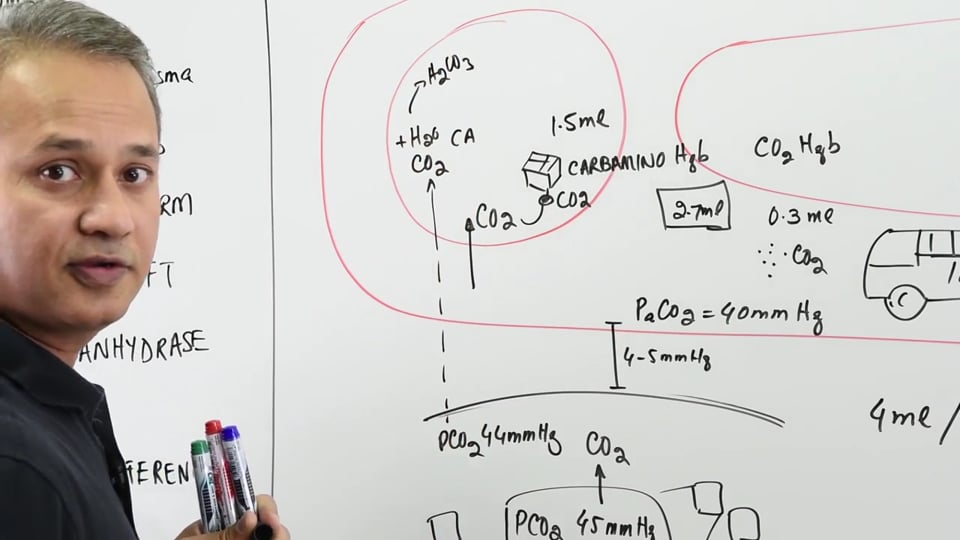 sma
RM
FT
ANHYDRASE
FFEREN
H2CO3
+H2O CA
CO2
1.5ml
CARBAMINO Hgb
CO2
CO2
CO2 Hgb
2.7ml
0.3 ml
CO2
PaCO2 = 40mmHg
4-5mmHg
4ml/
PCO2 44mmHg
CO2
PCO2 45mmHg